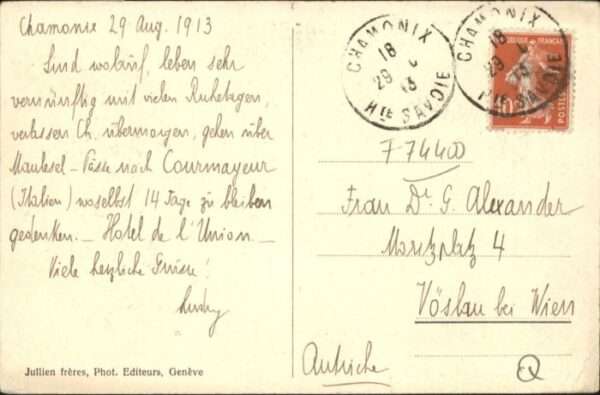 Chamonix 29 Aug. 1913
Sind wohlauf, leben sehr
vernünftig mit vielen Ruhetagen,
verlassen Ch. übermorgen, gehen über
Maulesel-Pässe nach Courmayeur
(Italien) woselbst 14 Tage zu bleiben
gedenken. — Hotel de l'Union. —
Viele herzliche Grüsse!
Jullien frères, Phot. Editeurs, Genève
CHAMONIX
18
29
13
Hte SAVOIE
CHAMONIX
18
29
13
Hte SAVOIE
POSTES
10
F 74400
Frau Dr. G. Alexander
Moritzplatz 4
Vöslau bei Wien
Autriche
Q